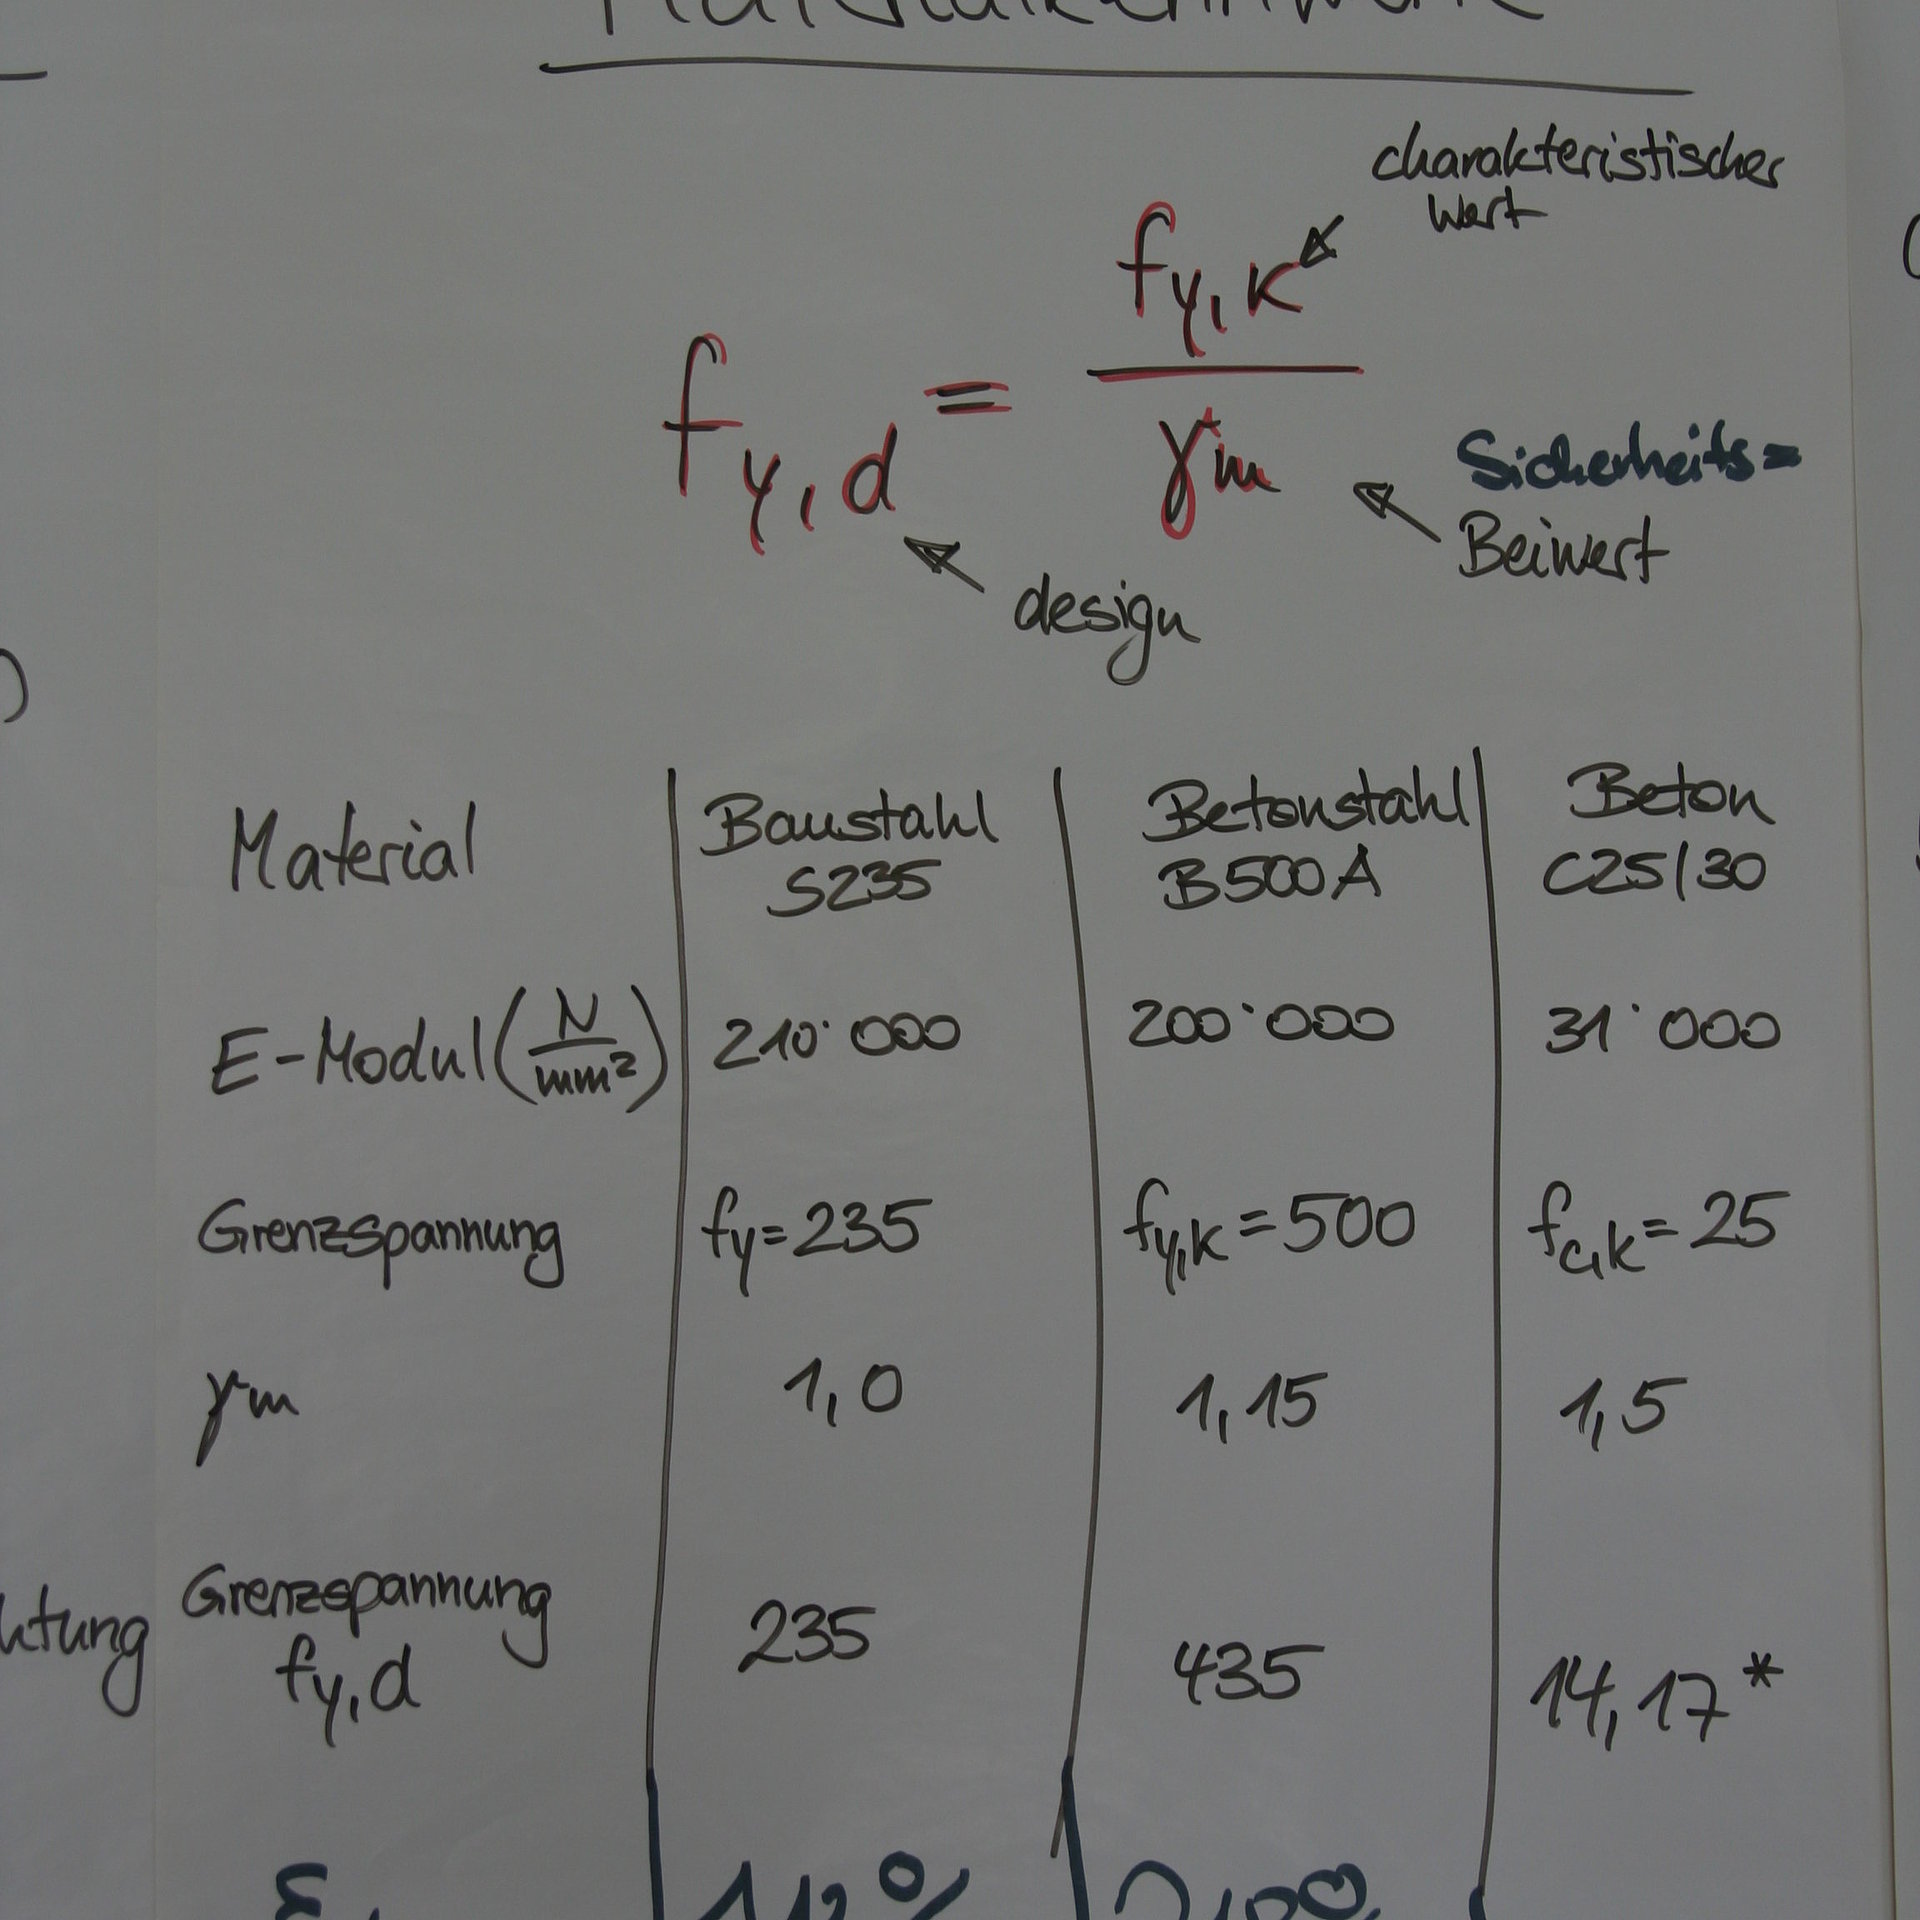 charakteristischer
Wert
fy,d = fy,k / γm
Sicherheits=
Beiwert
design
Material | Baustahl S235 | Betonstahl B500A | Beton C25/30
E-Modul (N/mm²) | 210'000 | 200'000 | 31'000
Grenzspannung | fy=235 | fy,k=500 | fc,k=25
γm | 1,0 | 1,15 | 1,5
Grenzspannung fy,d | 235 | 435 | 14,17*